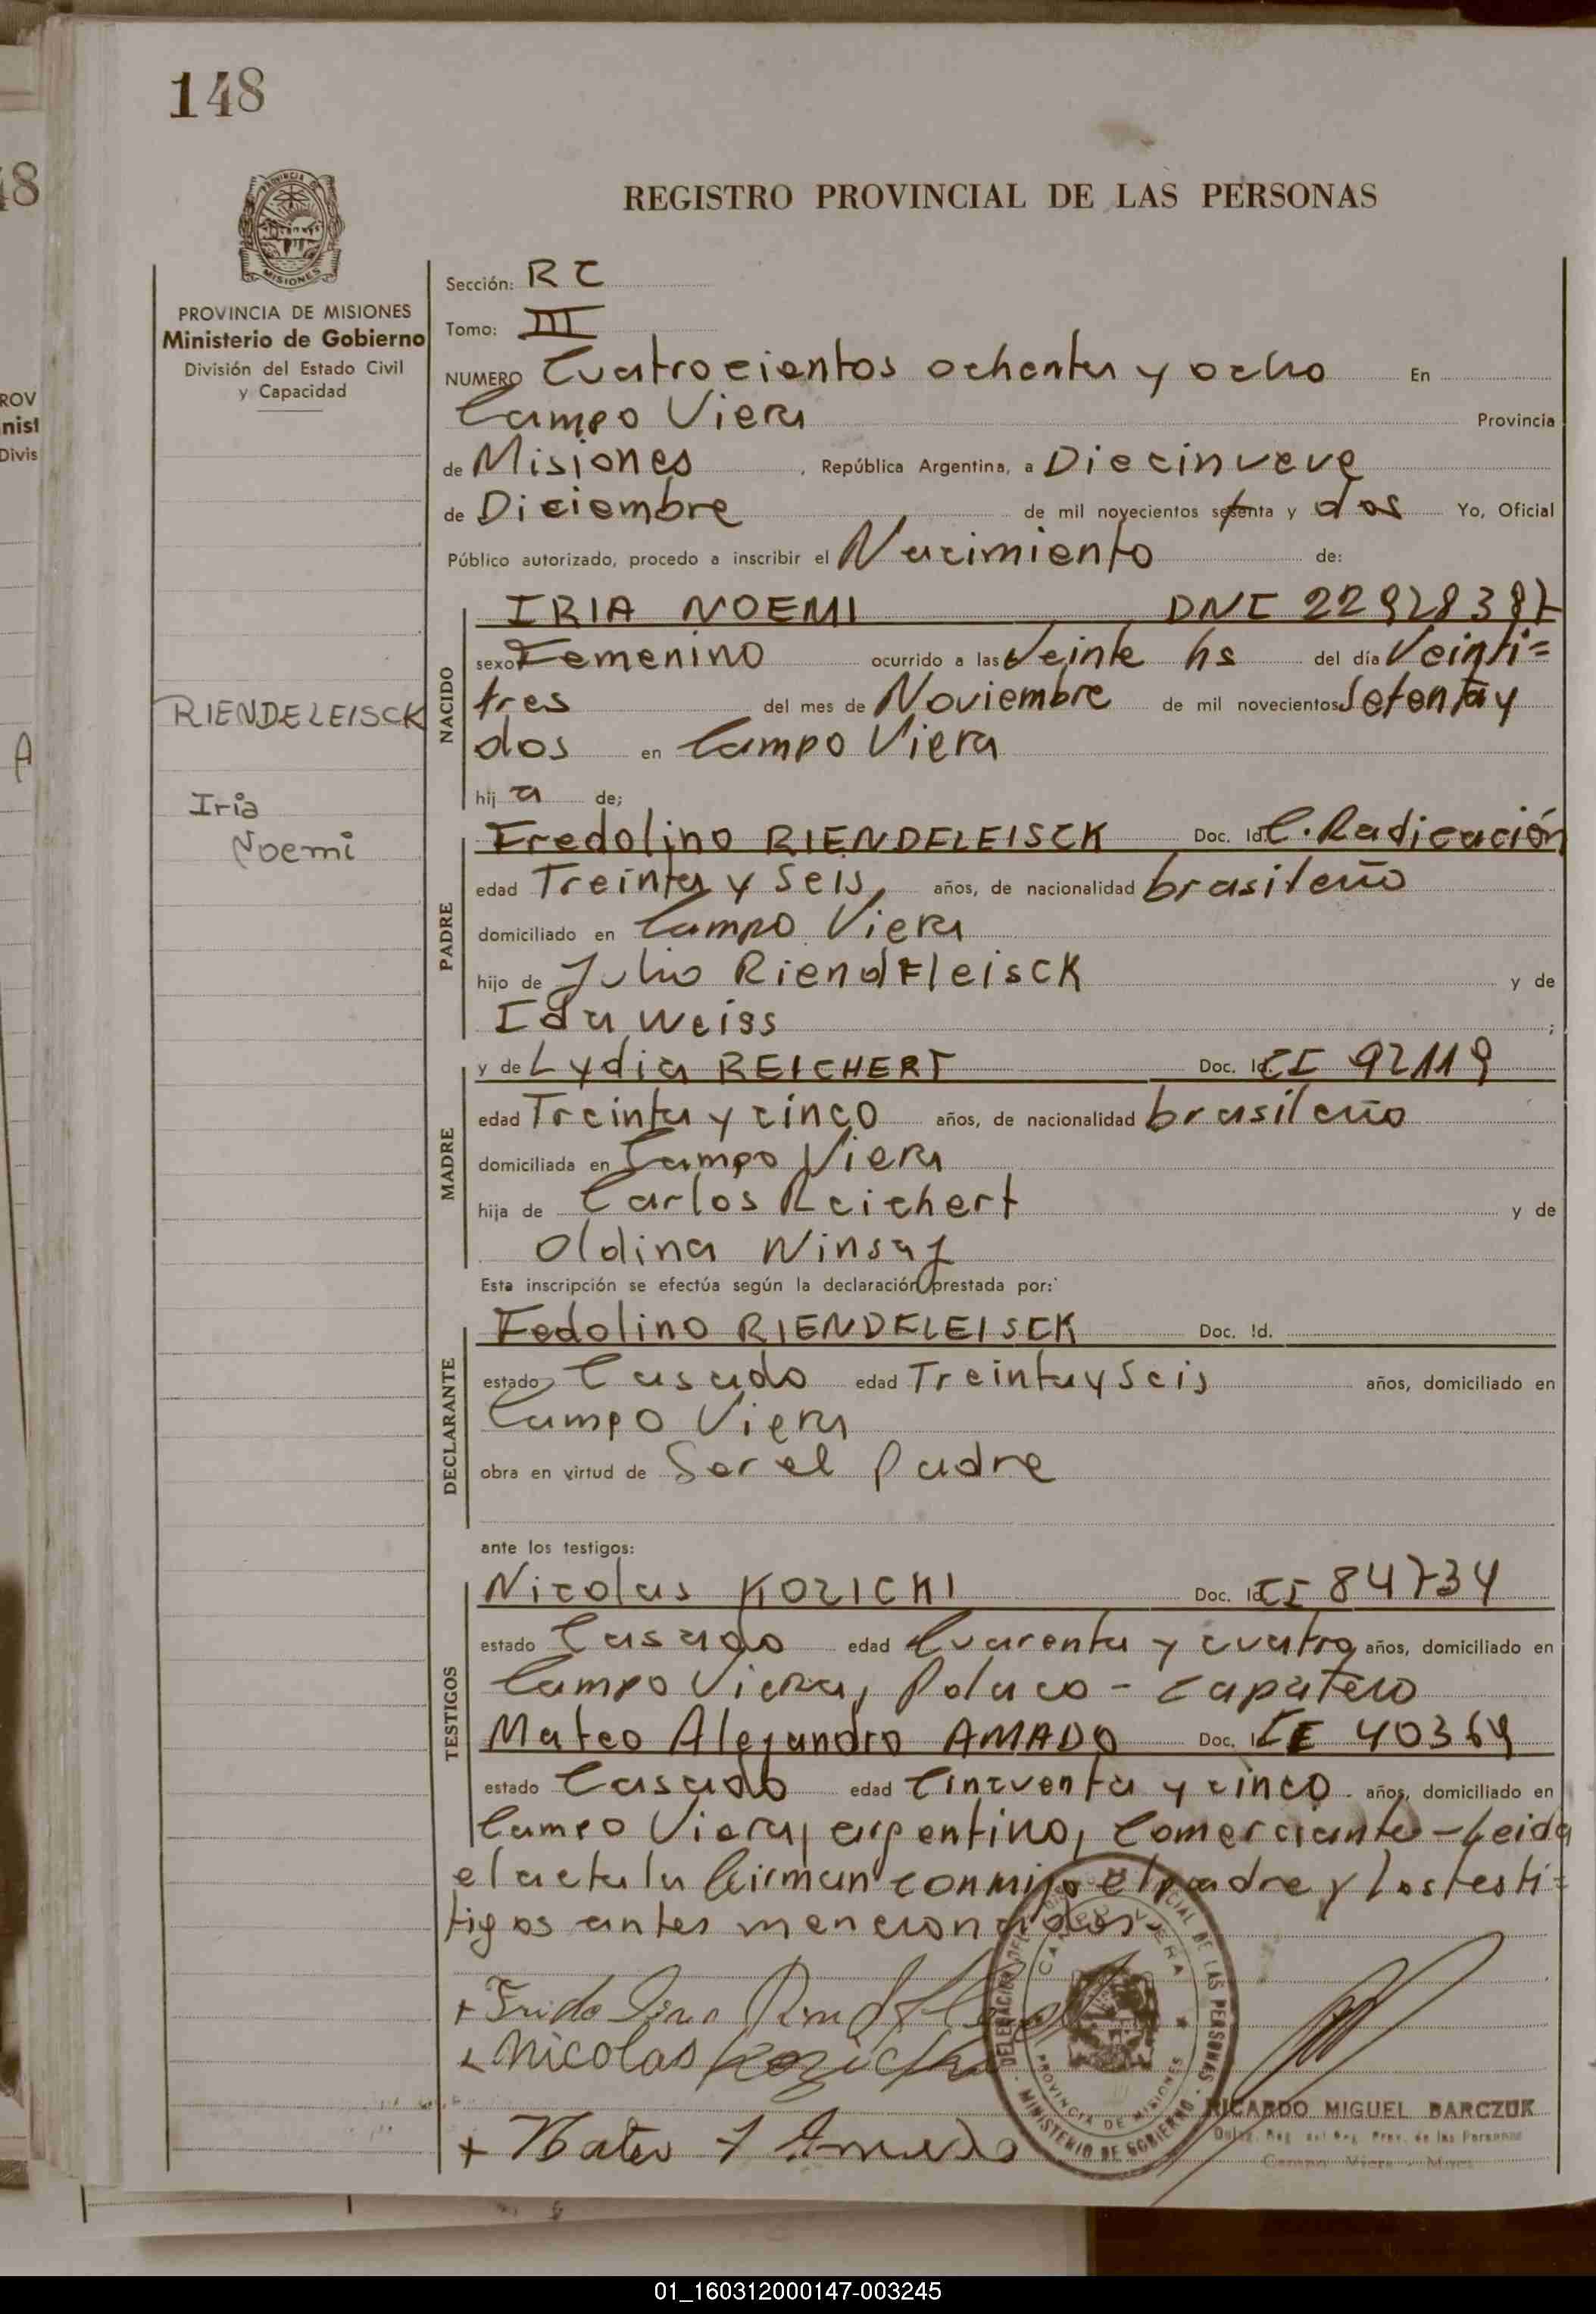 148
REGISTRO PROVINCIAL DE LAS PERSONAS
PROVINCIA DE MISIONES
Ministerio de Gobierno
División del Estado Civil
y Capacidad
RIENDELEISCK
Iria
Noemi
Sección: RC
Tomo: III
NUMERO Cuatrocientos ochenta y ocho En
Campo Viera Provincia
de Misiones, República Argentina, a Diecinueve
de Diciembre de mil novecientos setenta y dos Yo, Oficial
Público autorizado, procedo a inscribir el Nacimiento de:
NACIDO
IRIA NOEMI DNI 22928387
sexo Femenino ocurrido a las Veinte hs del día Veinti=
tres del mes de Noviembre de mil novecientos Setenta y
dos en Campo Viera
hij a de;
PADRE
Fredolino RIENDELEISCK Doc. Id. C. Radicación
edad Treinta y Seis, años, de nacionalidad brasileño
domiciliado en Campo Viera
hijo de Julio RiendFleisck y de
Ida Weiss ;
MADRE
y de Lydia REICHERT Doc. Id. CI 92119
edad Treinta y cinco años, de nacionalidad brasileño
domiciliada en Campo Viera
hija de Carlos Reichert y de
Oldina
Esta inscripción se efectúa según la declaración prestada por:
DECLARANTE
Fedolino RIENDFLEISCK Doc. Id.
estado Casado edad Treinta y Seis años, domiciliado en
Campo Viera
obra en virtud de Ser el Padre
ante los testigos:
TESTIGOS
Nicolas KOZICKI Doc. Id. CI 84734
estado Casado edad Cuarenta y cuatro años, domiciliado en
Campo Viera, Polaco - Zapatero
Mateo Alejandro AMADO Doc. Id. CE 40369
estado Casado edad Cincuenta y cinco años, domiciliado en
Campo Viera, argentino, Comerciante - Leida
el acta la firman conmigo el padre y los testi=
tigos antes mencionados.
Nicolas Kozicki
Mateo A Amado
DELEGACION DEL REGISTRO PROVINCIAL DE LAS PERSONAS
CAMPO VIERA
PROVINCIA DE MISIONES
MINISTERIO DE GOBIERNO
RICARDO MIGUEL BARCZUK
Campo Viera - Mnes
01_160312000147-003245